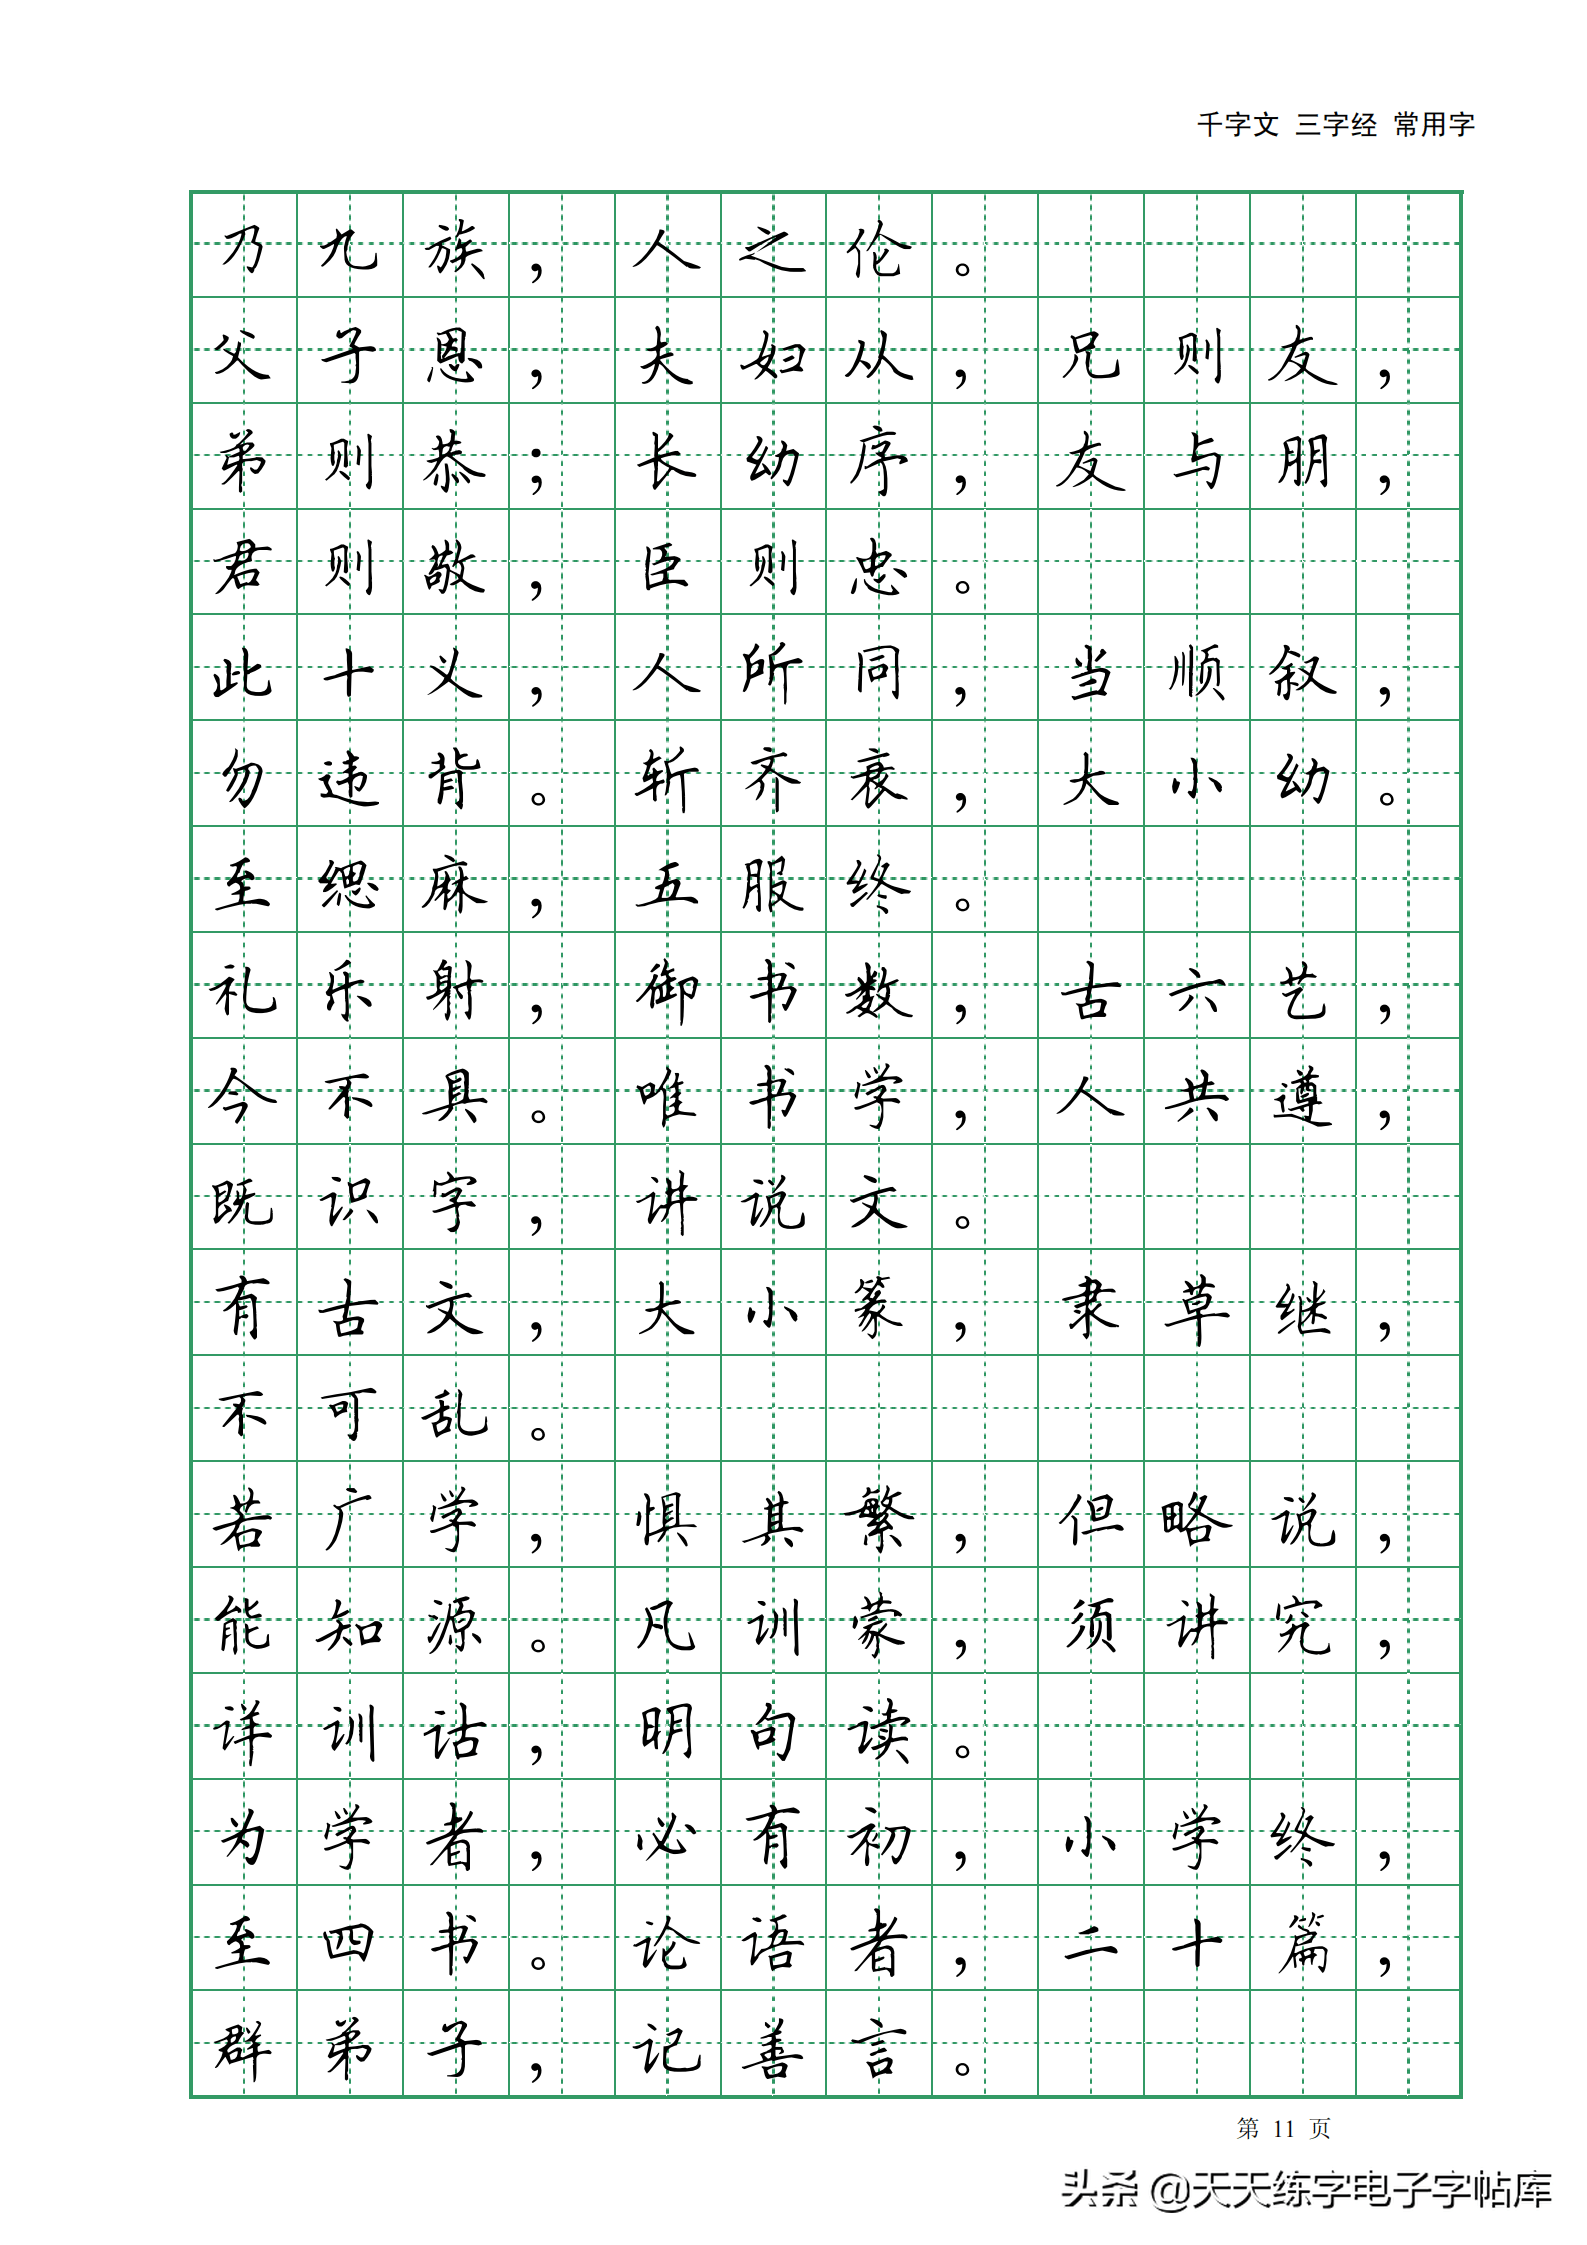 千字文 三字经 常用字
乃九族，人之伦。
父子恩，夫妇从，兄则友，
弟则恭；长幼序，友与朋，
君则敬，臣则忠。
此十义，人所同，当顺叙，
勿违背。斩齐衰，大小幼。
至缌麻，五服终。
礼乐射，御书数，古六艺，
今不具。唯书学，人共遵，
既识字，讲说文。
有古文，大小篆，隶草继，
不可乱。
若广学，惧其繁，但略说，
能知源。凡训蒙，须讲究，
详训诂，明句读。
为学者，必有初，小学终，
至四书。论语者，二十篇，
群弟子，记善言。
第 11 页
头条 @天天练字电子字帖库